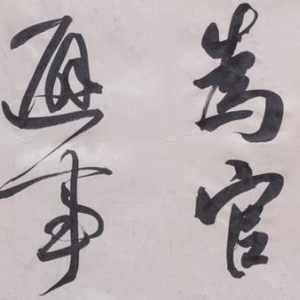 為官
避事